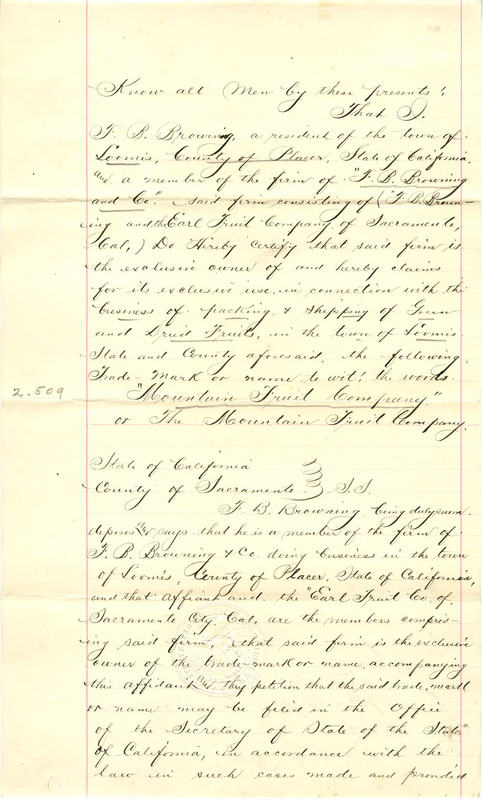 Know all Men by these presents;
That I.
F. B. Browning, a resident of the town of
Loomis, County of Placer, State of California,
and a member of the firm of "F. B. Browning
and Co". said firm consisting of (F. B. Brown-
ing and the Earl Fruit Company, of Sacramento,
Cal,) Do Hereby Certify that said firm is
the exclusive owner of and hereby claims
for its exclusive use, in connection with the
business of packing, & shipping of Green
and Dried Fruits, in the town of Loomis.
State and County aforesaid, the following,
Trade-Mark or name to wit: the words.
2.509
"Mountain Fruit Company."
or The Mountain Fruit Company.
State of California
County of Sacramento } S.S.
F. B. Browning being duly sworn
deposes and says that he is a member of the firm of
F. B. Browning & Co. doing business in the town
of Loomis, County of Placer, State of California,
and that affiant and the "Earl Fruit Co. of,
Sacramento City, Cal, are the members compris-
ing said firm, that said firm is the exclusive
owner of the trade-mark or name, accompanying
this affidavit and they petition that the said trade, mark
or name may be filed in the Office
of the Secretary of State of the State
of California, in accordance with the
law in such cases made and provided